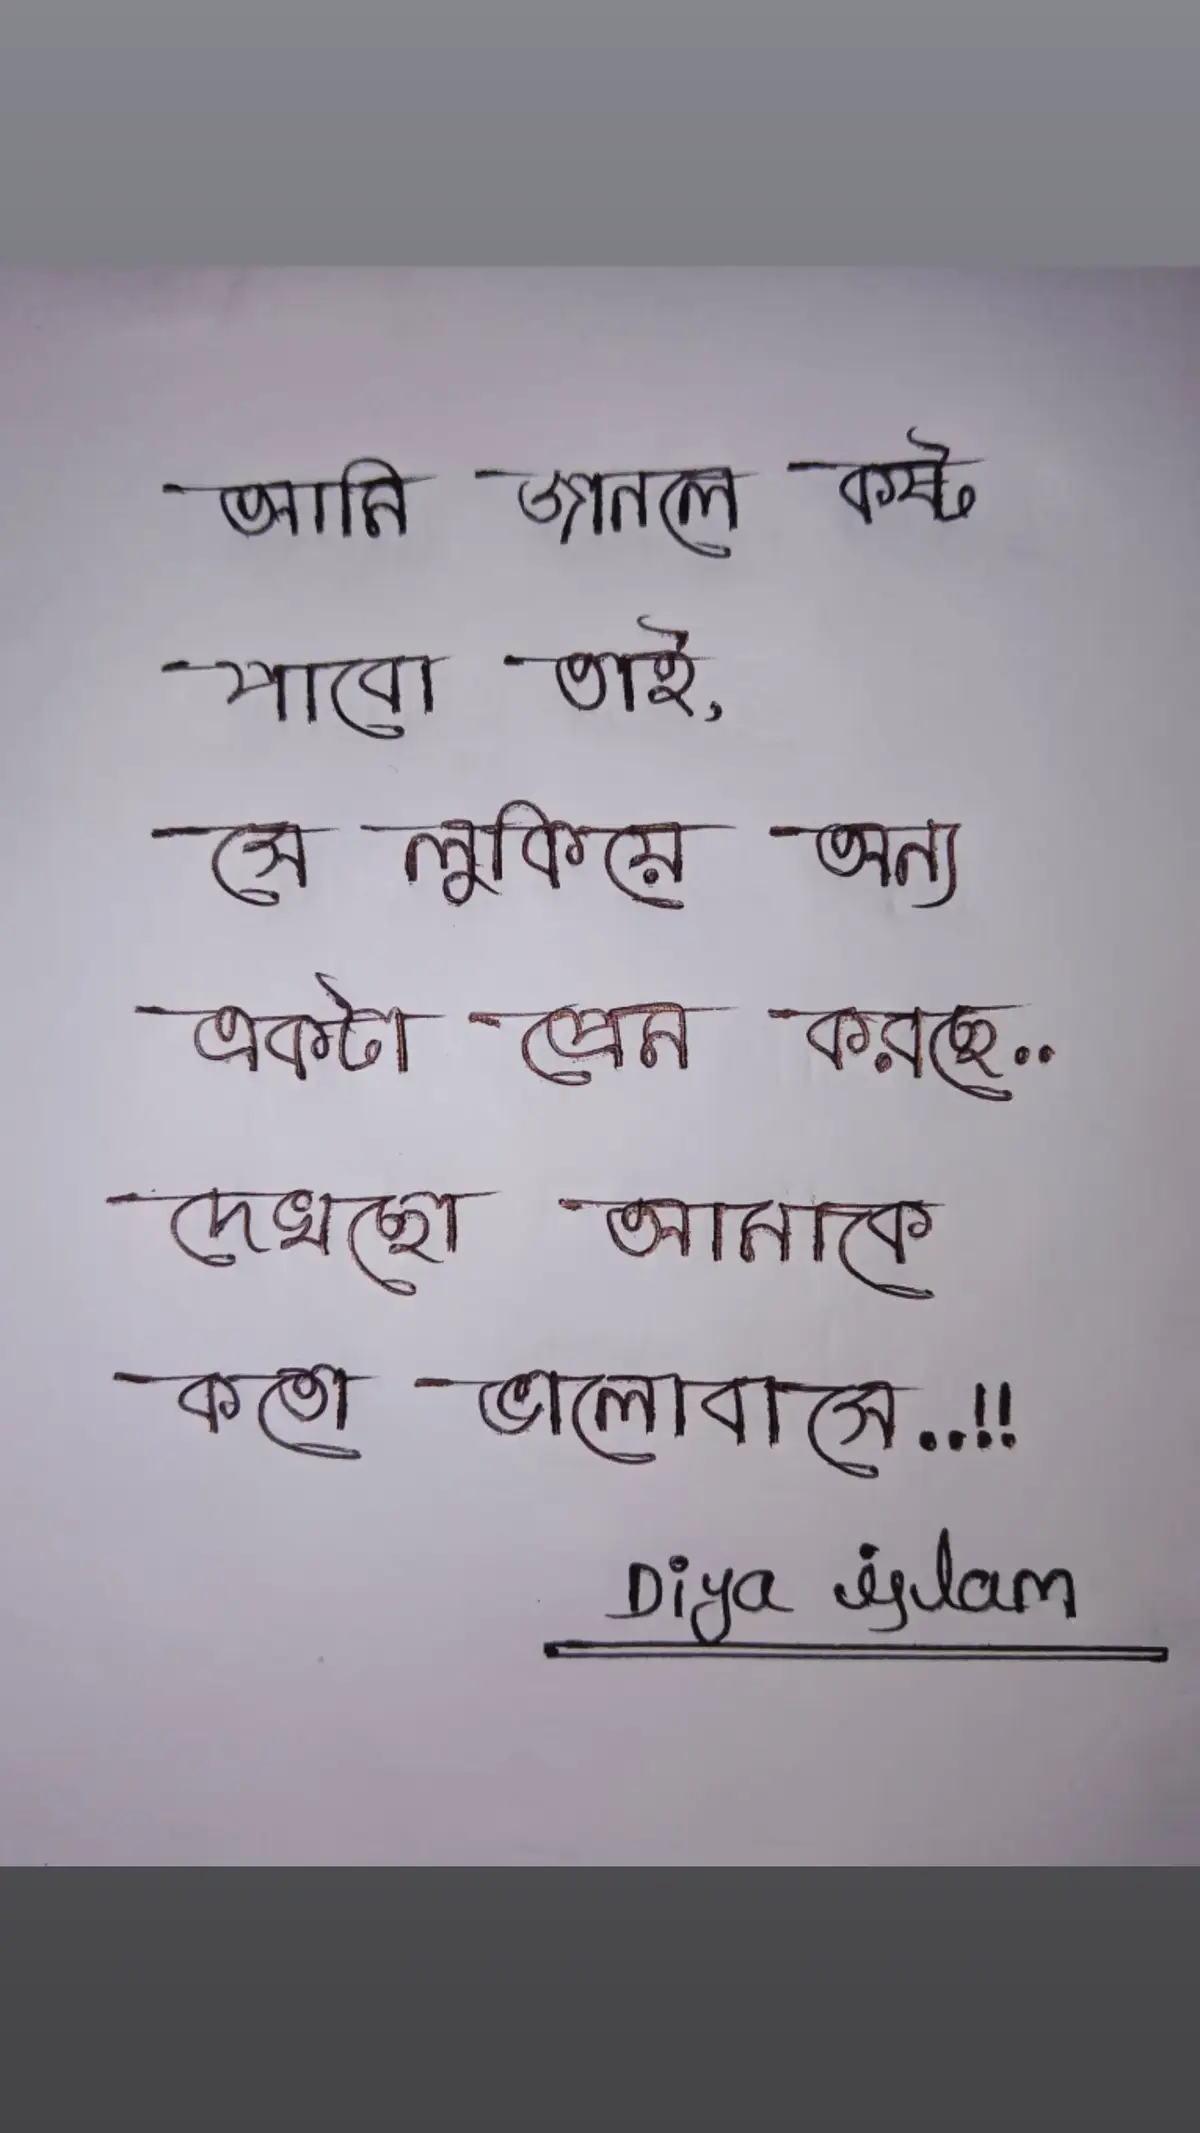 আমি জানলে কষ্ট
পাবো তাই,
সে লুকিয়ে অন্য
একটা প্রেম করছে..
দেখছো আমাকে
কতো ভালোবাসে..!!
Diya islam